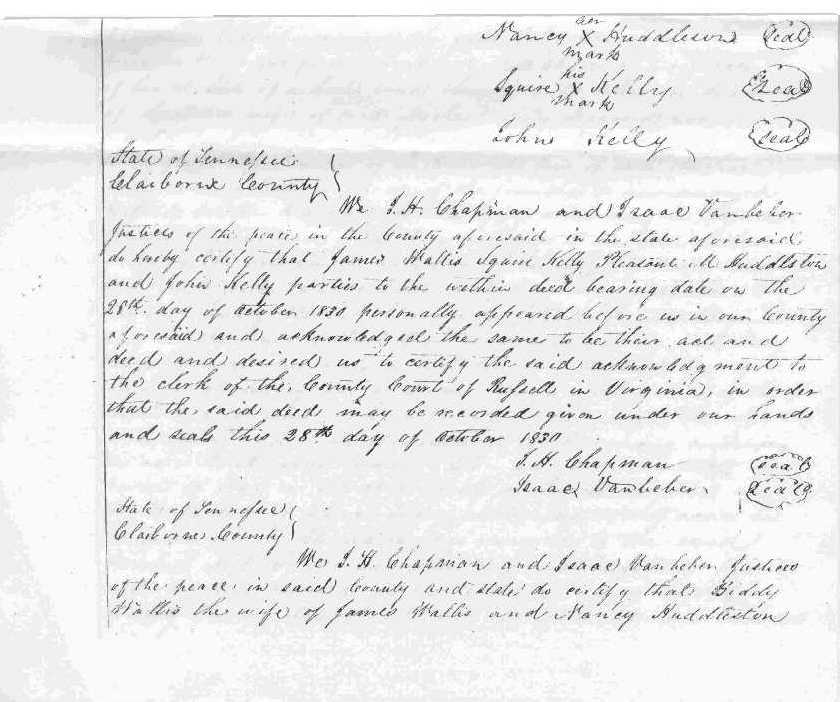 her
Nancy X Huddleson (seal)
mark
his
Squire X Kelly (seal)
mark
John Kelly (seal)
State of Tennessee
Claiborne County
We I. H. Chapman and Isaac Vanbeber
Justices of the peace in the County aforesaid in the state aforesaid
do hereby certify that James Wallis Squire Kelly Pleasant M Huddlston
and John Kelly parties to the within deed bearing date on the
28th day of October 1830 personally appeared before us in our County
aforesaid and acknowledged the same to be their act and
deed and desired us to certify the said acknowledgment to
the clerk of the County Court of Russell in Virginia, in order
that the said deed may be recorded given under our hands
and seals this 28th day of October 1830
I. H. Chapman (seal)
Isaac Vanbeber (seal)
State of Tennessee
Claiborne County
We I. H. Chapman and Isaac Vanbeber Justices
of the peace in said County and state do certify that Biddy
Wallis the wife of James Wallis and Nancy Huddleston